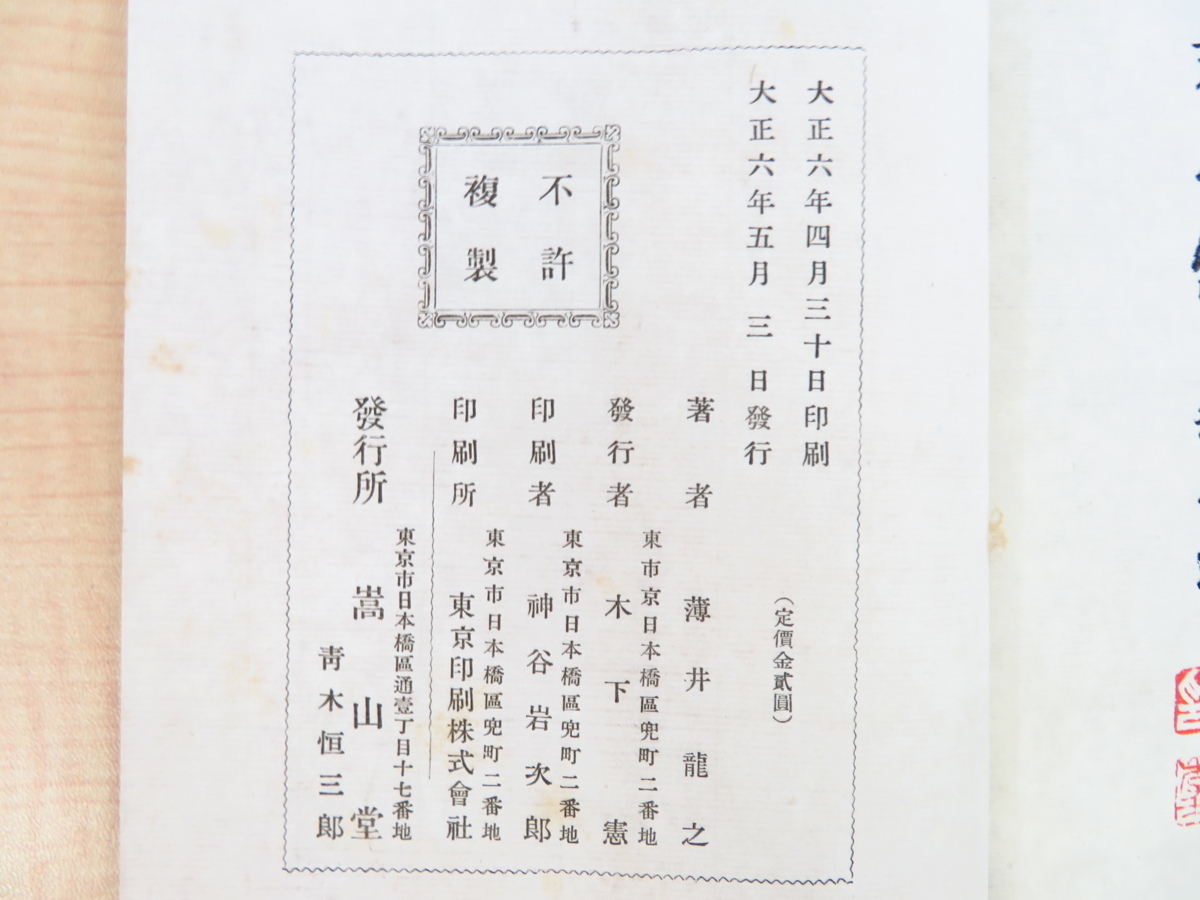 大正六年四月三十日印刷
大正六年五月三日發行
(定價金貳圓)
不許
複製
著者 薄井龍之
東市京日本橋區兜町二番地
發行者 木下憲
東京市日本橋區兜町二番地
印刷者 神谷岩次郎
東京市日本橋區兜町二番地
印刷所 東京印刷株式會社
東京市日本橋區通壹丁目十七番地
發行所 嵩山堂
靑木恒三郎